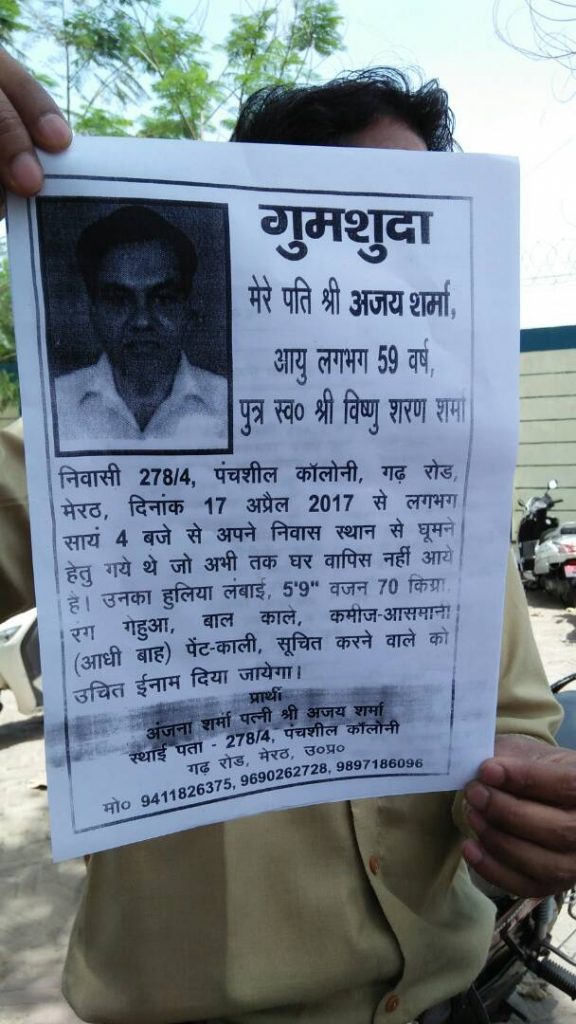 गुमशुदा
मेरे पति श्री अजय शर्मा,
आयु लगभग 59 वर्ष,
पुत्र स्व० श्री विष्णु शरण शर्मा
निवासी 278/4, पंचशील कॉलोनी, गढ़ रोड,
मेरठ, दिनांक 17 अप्रैल 2017 से लगभग
सायं 4 बजे से अपने निवास स्थान से घूमने
हेतु गये थे जो अभी तक घर वापिस नहीं आये
है। उनका हुलिया लंबाई, 5'9" वजन 70 किग्रा,
रंग गेहुआ, बाल काले, कमीज-आसमानी
(आधी बाह) पेंट-काली, सूचित करने वाले को
उचित ईनाम दिया जायेगा।
प्रार्थी
अंजना शर्मा पत्नी श्री अजय शर्मा
स्थाई पता - 278/4, पंचशील कॉलोनी
गढ़ रोड, मेरठ, उ०प्र०
मो० 9411826375, 9690262728, 9897186096